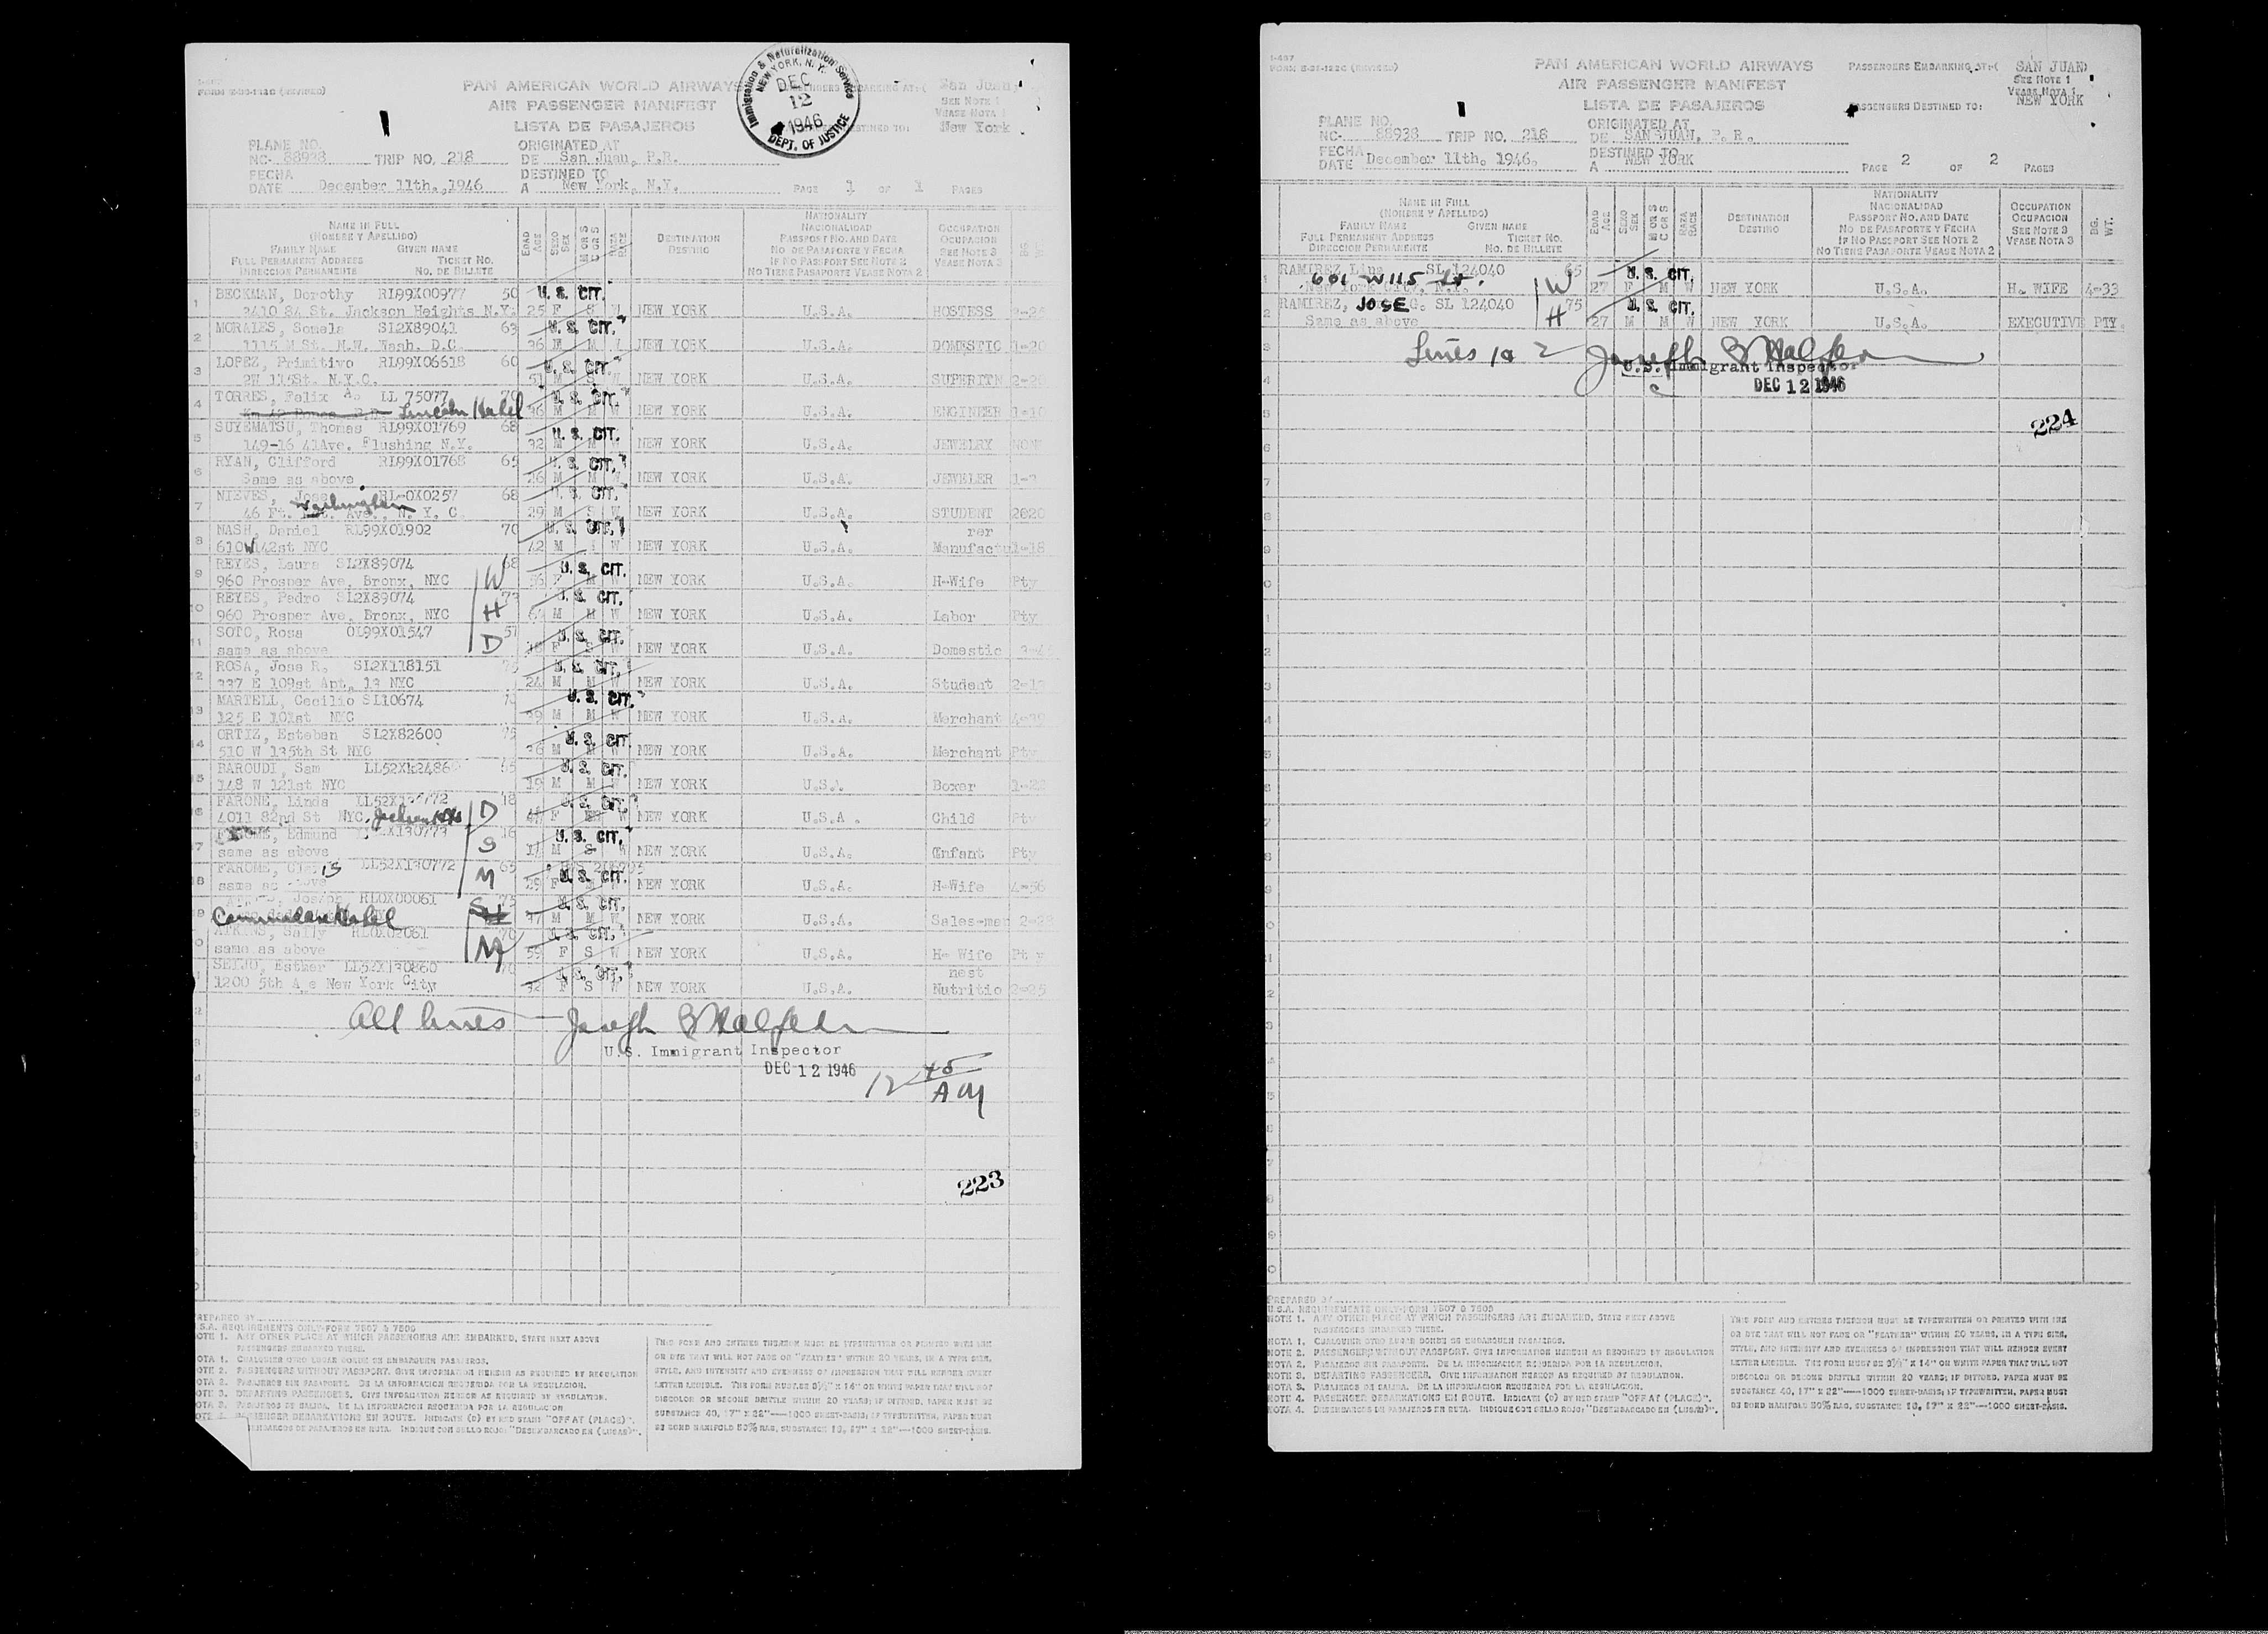 FORM (REVISED)
PAN AMERICAN WORLD AIRWAYS
AIR PASSENGER MANIFEST
LISTA DE PASAJEROS
Immigration & Naturalization Service
NEW YORK, N.Y.
DEC
12
1946
DEPT. OF JUSTICE
San Juan
SEE NOTE 1
VEASE NOTA 1
New York
PLANE NO.
NC- 88938 TRIP NO. 218
ORIGINATED AT
DE San Juan, P.R.
FECHA
DATE December 11th.,1946
DESTINED TO
A New York, N.Y.
PAGE 1 OF 1 PAGES
NAME IN FULL
(NOMBRE Y APELLIDO)
FAMILY NAME GIVEN NAME
FULL PERMANENT ADDRESS TICKET NO.
DIRECCION PERMANENTE NO. DE BILLETE
EDAD AGE
SEXO SEX
M OR S C OR S
RAZA RACE
DESTINATION
DESTINO
NATIONALITY
NACIONALIDAD
PASSPORT NO. AND DATE
NO DE PASAPORTE Y FECHA
IF NO PASSPORT SEE NOTE 2
NO TIENE PASAPORTE VEASE NOTA 2
OCCUPATION
OCUPACION
SEE NOTE 3
VEASE NOTA 3
1 BECKMAN, Dorothy RL99X00977 50 U. S. CIT.
3410 84 St. Jackson Heights N.Y. 25 F S W NEW YORK U.S.A. HOSTESS
2 MORALES, Somela SL2X89041 63 U. S. CIT.
1115 M St. N.W. Wash. D.C. 36 M M W NEW YORK U.S.A. DOMESTIC 1-20
3 LOPEZ, Primitivo RL99X06618 60 U. S. CIT.
115St. N.Y.C. 51 M S W NEW YORK U.S.A. SUPERITN
4 TORRES, Felix A. LL 75077 70 U. S. CIT.
Lincoln Hotel 36 M M W NEW YORK U.S.A. ENGINEER 1-10
5 SUYEMATSU, Thomas RL99X01769 68 U. S. CIT.
149-16 41Ave. Flushing N.Y. 32 M M W NEW YORK U.S.A. JEWELRY NONE
6 RYAN, Clifford RL99X01768 65 U. S. CIT.
Same as above 26 M M W NEW YORK U.S.A. JEWELER
7 NIEVES, Jose RL-0X0257 68 U. S. CIT.
46 Ft. Washington Ave., N. Y. C. 29 M S W NEW YORK U.S.A. STUDENT 2020
8 NASH, Daniel RL99X01902 70 U. S. CIT. rer
610W142st NYC 42 M W NEW YORK U.S.A. Manufactu 1-18
9 REYES, Laura SL2X89074 68 U. S. CIT.
960 Prosper Ave, Bronx, NYC W 56 F M W NEW YORK U.S.A. H-Wife Pty
10 REYES, Pedro SL2X89074 73 U. S. CIT.
960 Prosper Ave, Bronx, NYC H M M W NEW YORK U.S.A. Labor Pty
11 SOTO, Rosa 0L99X01547 51 U. S. CIT.
same as above D F S W NEW YORK U.S.A. Domestic
12 ROSA, Jose R. SL2X118151 U. S. CIT.
337 E 109st Apt. 13 NYC 24 M M W NEW YORK U.S.A. Student
13 MARTELL, Cecilio SL10674 U. S. CIT.
125 E 101st NYC 39 M M W NEW YORK U.S.A. Merchant
14 ORTIZ, Esteban SL2X82600 75 U. S. CIT.
510 W 135th St NYC 36 M M W NEW YORK U.S.A. Merchant Pty
15 BAROUDI, Sam LL52X12486 U. S. CIT.
148 W 121st NYC 19 M M W NEW YORK U.S.A. Boxer
16 FARONE, Linda 18 U. S. CIT.
4011 82nd St NYC, D F W NEW YORK U.S.A. Child Pty
17 Edmund 16 U. S. CIT.
same as above S M S W NEW YORK U.S.A. Enfant Pty
18 FARONE, LL52X130772 65 U. S. CIT.
same as above M 29 F W NEW YORK U.S.A. H-Wife 4-56
19 Joseph RL0X00061 75 U. S. CIT.
Hotel M M W NEW YORK U.S.A. Sales-man
ATKINS, Sally 70 U. S. CIT.
same as above M 59 F S W NEW YORK U.S.A. H- Wife Pty
SEIJO, Esther LL52X130860 70 U. S. CIT. nest
1200 5th Ave New York City 32 F S W NEW YORK U.S.A. Nutritio 2-25
All lines
U.S. Immigrant Inspector
DEC 12 1946
12 45
AM
223
PREPARED BY
U.S.A. REQUIREMENTS ONLY-FORM 7507 & 7509
NOTE 1. ANY OTHER PLACE AT WHICH PASSENGERS ARE EMBARKED, STATE NEXT ABOVE
PASSENGERS EMBARKED THERE.
NOTA 1. CUALQUIER OTRO LUGAR DONDE SE EMBARQUEN PASAJEROS.
NOTE 2. PASSENGERS WITHOUT PASSPORT. GIVE INFORMATION HEREON AS REQUIRED BY REGULATION
NOTA 2. PASAJEROS SIN PASAPORTE. DE LA INFORMACION REQUERIDA POR LA REGULACION.
NOTE 3. DEPARTING PASSENGERS. GIVE INFORMATION HEREON AS REQUIRED BY REGULATION.
NOTA 3. PASAJEROS DE SALIDA. DE LA INFORMACION REQUERIDA POR LA REGULACION
NOTE 4. PASSENGER DEBARKATIONS EN ROUTE. INDICATE (D) BY RED STAMP "OFF AT (PLACE)".
EMBARCOS DE PASAJEROS EN RUTA. INDIQUE CON SELLO ROJO: "DESEMBARCADO EN (LUGAR)".
THIS FORM AND ENTRIES THEREON MUST BE TYPEWRITTEN OR PRINTED WITH INK
OR DYE THAT WILL NOT FADE OR "FEATHER" WITHIN 20 YEARS, IN A TYPE SIZE,
STYLE, AND INTENSITY AND EVENNESS OF IMPRESSION THAT WILL RENDER EVERY
LETTER LEGIBLE. THE FORM MUST BE 8½" X 14" OR WHITE PAPER THAT WILL NOT
DISCOLOR OR BECOME BRITTLE WITHIN 20 YEARS; IF DITTOED, PAPER MUST BE
SUBSTANCE 40, 17" X 22"—1000 SHEET-BASIS; IF TYPEWRITTEN, PAPER MUST
BE BOND MANIFOLD 50% RAG, SUBSTANCE 16, 17" X 22"—1000 SHEET-BASIS.
I-467
FORM (REVISED)
PAN AMERICAN WORLD AIRWAYS
AIR PASSENGER MANIFEST
LISTA DE PASAJEROS
PASSENGERS EMBARKING AT:( SAN JUAN)
SEE NOTE 1
VEASE NOTA 1
PASSENGERS DESTINED TO: NEW YORK
PLANE NO.
NC- 88938 TRIP NO. 218
ORIGINATED AT
DE SAN JUAN, P. R.
FECHA
DATE December 11th. 1946.
DESTINED TO
A NEW YORK
PAGE 2 OF 2 PAGES
NAME IN FULL
(NOMBRE Y APELLIDO)
FAMILY NAME GIVEN NAME
FULL PERMANENT ADDRESS TICKET NO.
DIRECCION PERMANENTE NO. DE BILLETE
EDAD AGE
SEXO SEX
M OR S C OR S
RAZA RACE
DESTINATION
DESTINO
NATIONALITY
NACIONALIDAD
PASSPORT NO. AND DATE
NO DE PASAPORTE Y FECHA
IF NO PASSPORT SEE NOTE 2
NO TIENE PASAPORTE VEASE NOTA 2
OCCUPATION
OCUPACION
SEE NOTE 3
VEASE NOTA 3
BG. WT.
1 RAMIREZ Lina SL 124040 65 U. S. CIT.
601 W 115 St.
New York City, N.Y. W 27 F M W NEW YORK U.S.A. H. WIFE 4-33
2 RAMIREZ, JOSE G. SL 124040 75 U. S. CIT.
Same as above H 27 M M W NEW YORK U.S.A. EXECUTIVE PTY.
Lines 1 a 2
U.S. Immigrant Inspector
DEC 12 1946
224
PREPARED BY
U.S.A. REQUIREMENTS ONLY-FORM 7507 & 7509
NOTE 1. ANY OTHER PLACE AT WHICH PASSENGERS ARE EMBARKED, STATE NEXT ABOVE
PASSENGERS EMBARKED THERE.
NOTA 1. CUALQUIER OTRO LUGAR DONDE SE EMBARQUEN PASAJEROS.
NOTE 2. PASSENGERS WITHOUT PASSPORT. GIVE INFORMATION HEREON AS REQUIRED BY REGULATION
NOTA 2. PASAJEROS SIN PASAPORTE. DE LA INFORMACION REQUERIDA POR LA REGULACION.
NOTE 3. DEPARTING PASSENGERS. GIVE INFORMATION HEREON AS REQUIRED BY REGULATION.
NOTA 3. PASAJEROS DE SALIDA. DE LA INFORMACION REQUERIDA POR LA REGULACION.
NOTE 4. PASSENGER DEBARKATIONS EN ROUTE. INDICATE (D) BY RED STAMP "OFF AT (PLACE)".
NOTA 4. DESEMBARCOS DE PASAJEROS EN RUTA. INDIQUE CON SELLO ROJO: "DESEMBARCADO EN (LUGAR)".
THIS FORM AND ENTRIES THEREON MUST BE TYPEWRITTEN OR PRINTED WITH INK
OR DYE THAT WILL NOT FADE OR "FEATHER" WITHIN 20 YEARS, IN A TYPE SIZE,
STYLE, AND INTENSITY AND EVENNESS OF IMPRESSION THAT WILL RENDER EVERY
LETTER LEGIBLE. THE FORM MUST BE 8½" X 14" OR WHITE PAPER THAT WILL NOT
DISCOLOR OR BECOME BRITTLE WITHIN 20 YEARS; IF DITTOED, PAPER MUST BE
SUBSTANCE 40, 17" X 22"—1000 SHEET-BASIS; IF TYPEWRITTEN, PAPER MUST
BE BOND MANIFOLD 50% RAG, SUBSTANCE 16, 17" X 22"—1000 SHEET-BASIS.